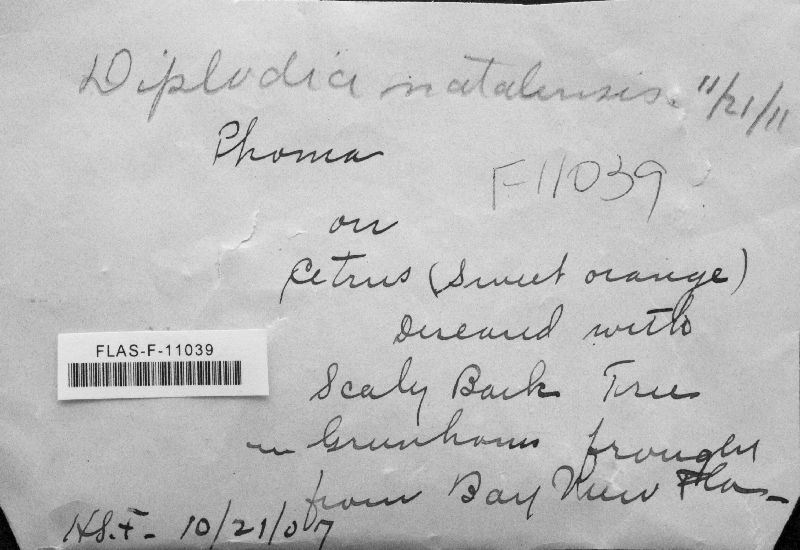 Diplodia natalensis. 11/21/11
Phoma
F-11039
on
Citrus (Sweet orange)
Diseased with
FLAS-F-11039
Scaly Bark Trees
in Greenhouse brought
from Bay View Fla-
H.S.F- 10/21/07